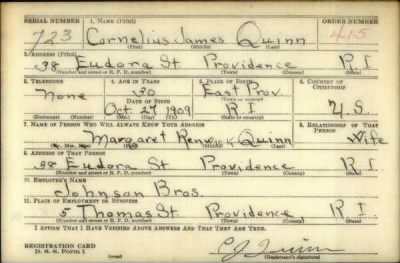 SERIAL NUMBER 1. NAME (Print) ORDER NUMBER
723 Cornelius James Quinn 415
(First) (Middle) (Last)
2. ADDRESS (Print)
38 Eudora St Providence R I
(Number and street or R. F. D. number) (Town) (County) (State)
3. TELEPHONE 4. AGE IN YEARS 5. PLACE OF BIRTH 6. COUNTRY OF CITIZENSHIP
None 30 East Prov.
DATE OF BIRTH
Oct 27 1909 R I U.S.
(Exchange) (Number) (Mo.) (Day) (Yr.) (State or country)
7. NAME OF PERSON WHO WILL ALWAYS KNOW YOUR ADDRESS 8. RELATIONSHIP OF THAT PERSON
Margaret Quinn Wife
(Mr., Mrs., Miss) (First) (Middle) (Last)
9. ADDRESS OF THAT PERSON
38 Eudora St Providence R I
(Number and street or R. F. D. number) (Town) (County) (State)
10. EMPLOYER'S NAME
Johnson Bros.
11. PLACE OF EMPLOYMENT OR BUSINESS
5 Thomas St Providence R I.
(Number and street or R. F. D. number) (Town) (County) (State)
I AFFIRM THAT I HAVE VERIFIED ABOVE ANSWERS AND THAT THEY ARE TRUE.
REGISTRATION CARD
D. S. S. FORM 1 (over) C J Quinn
(Registrant's signature)